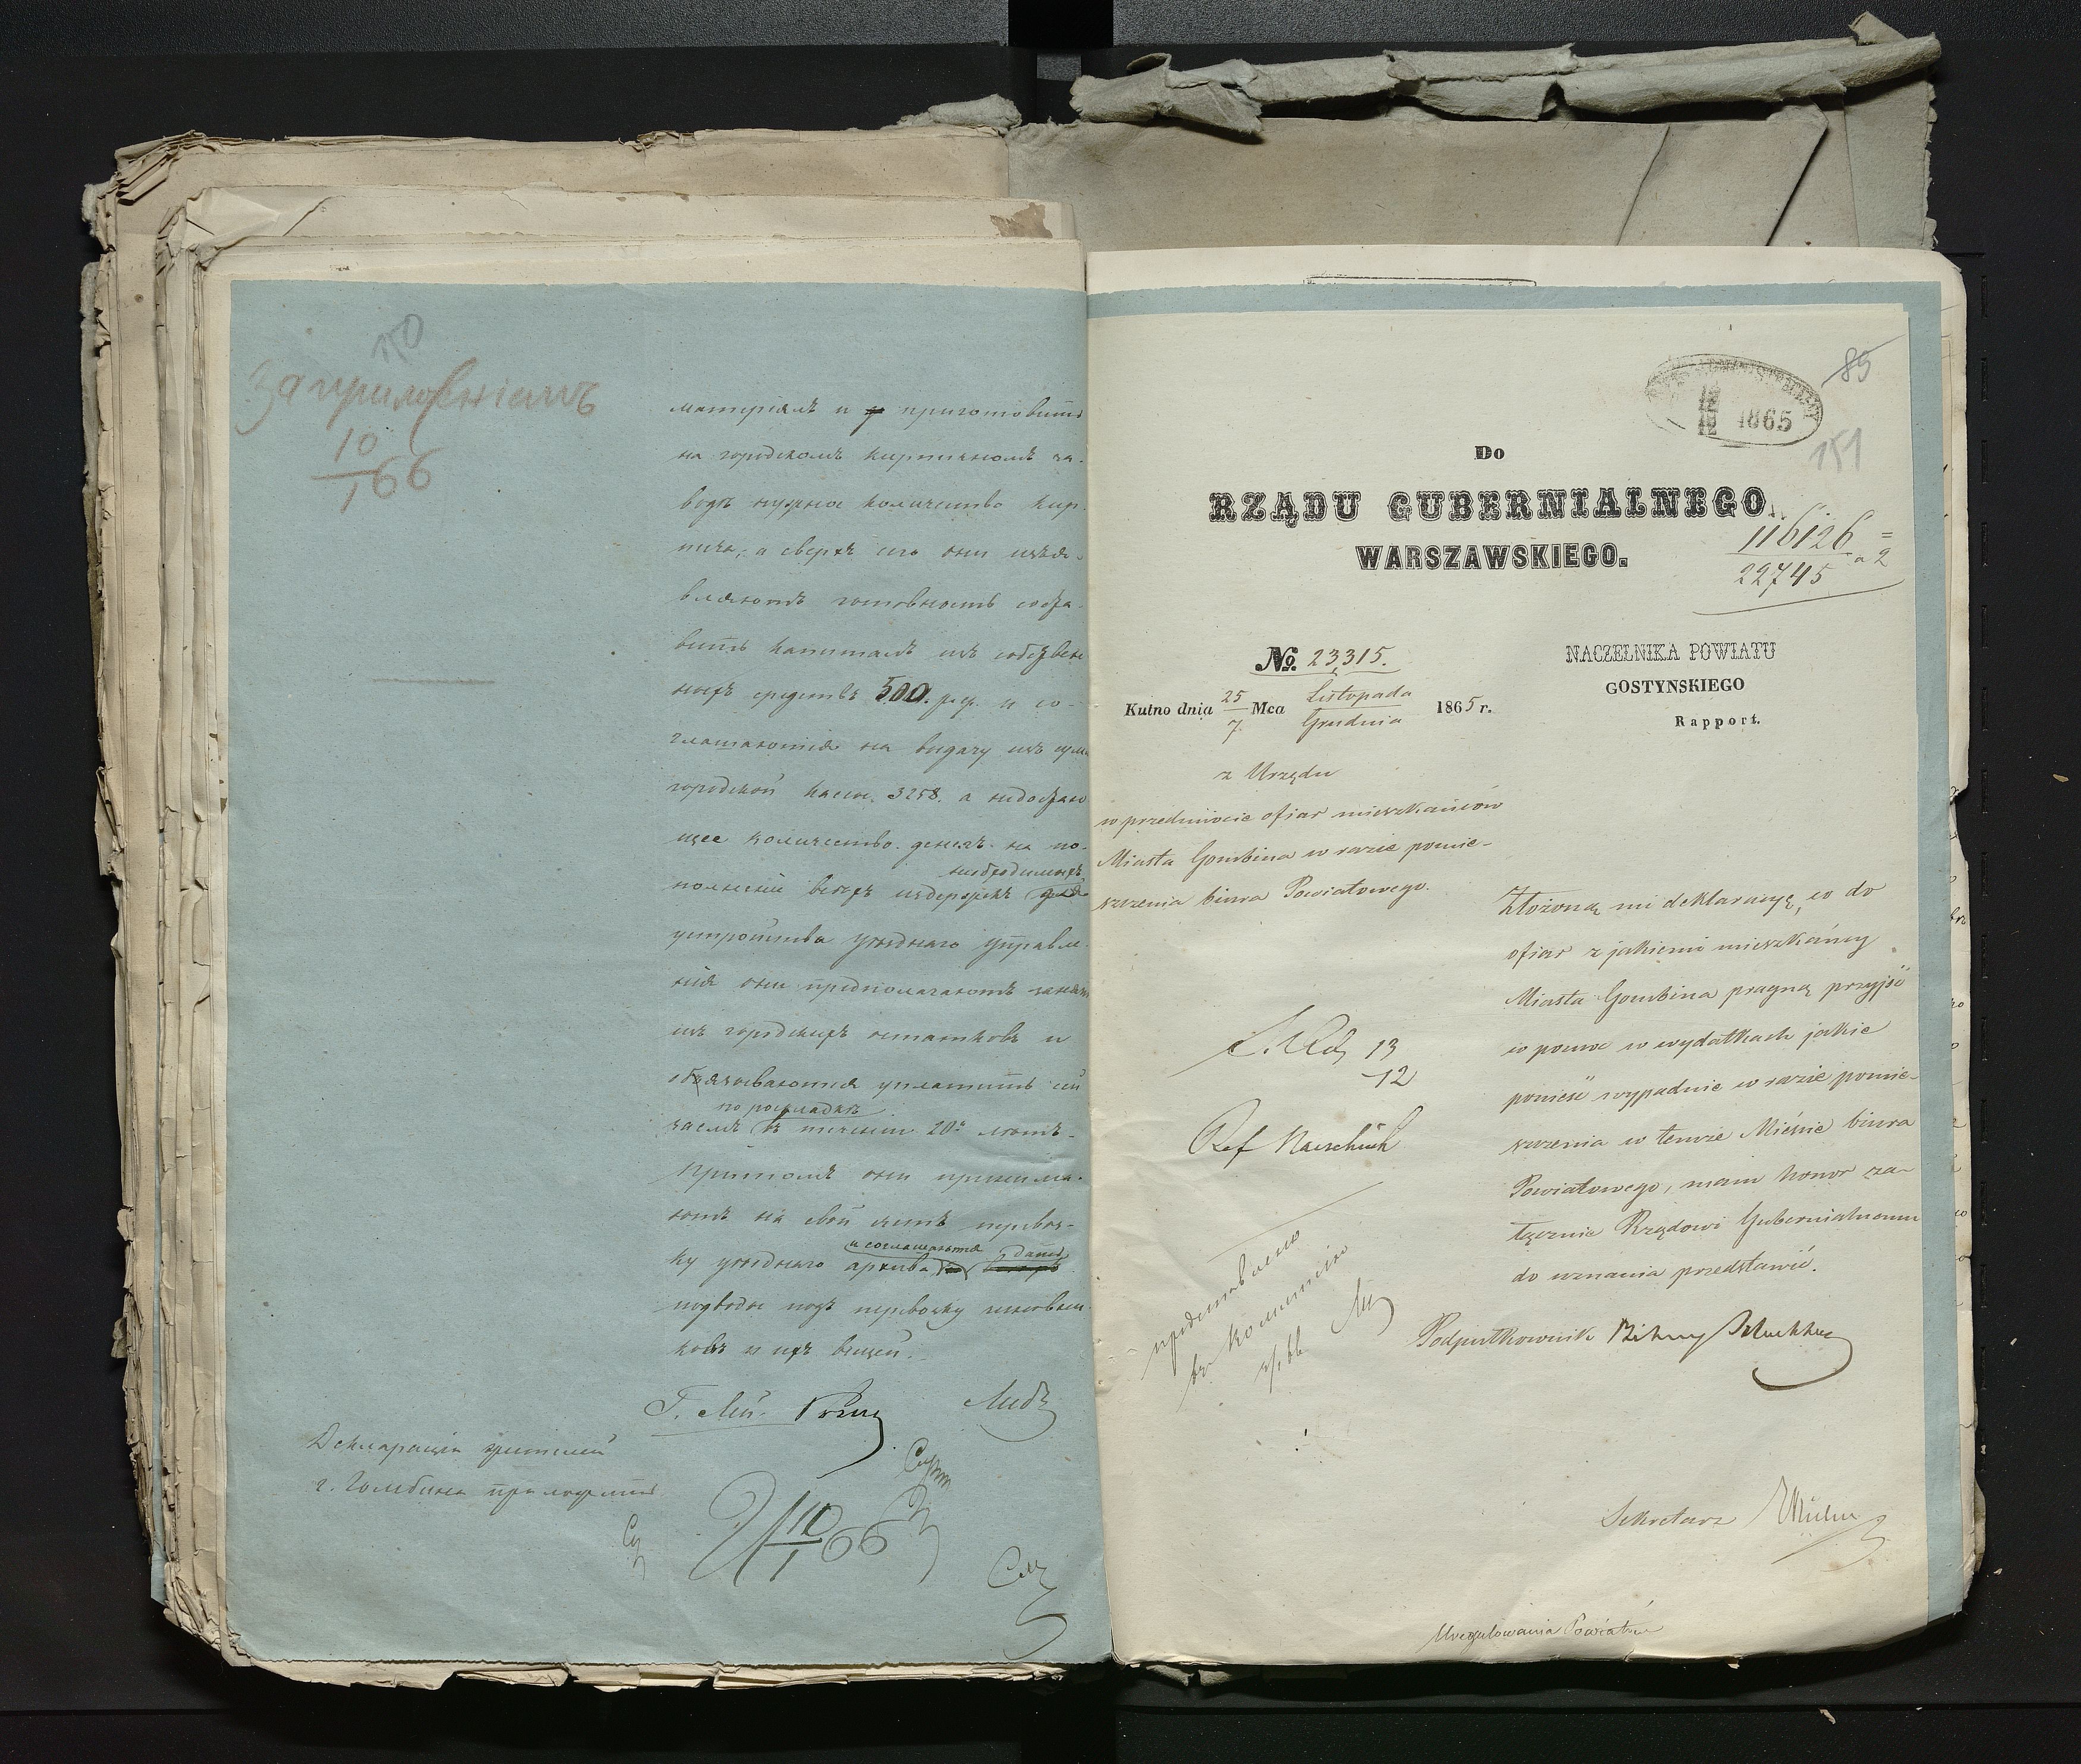 150
За приложеніемъ
10/1 66
матеріалъ и приготовить
на городскомъ кирпичномъ за-
водѣ нужное количество кир-
пича, а сверхъ сего они изъя-
вляютъ готовность соста-
вить капиталъ изъ собствен
ныхъ средствъ 500. руб. и со-
глашаются на выдачу изъ
городской кассы 3258. а недостаю
щее количество денегъ на по-
полненіе всѣхъ издержекъ необходимыхъ для
устройства уѣзднаго управле-
нія они предполагаютъ занять
изъ городскихъ остатковъ и
обязываются уплатить сей
по раскладкѣ
заемъ въ теченіи 20 лѣтъ.
Притомъ они принима-
ютъ на свой счетъ перевоз-
и соглашаются дать
ку уѣзднаго архива
подводы подъ перевозку чиновни
ковъ и ихъ вещей.
Г. Лей.
Декларація жителей
г. Гомбина приложить
10/1 66
1865
85
151
Do
RZĄDU GUBERNIALNEGO
WARSZAWSKIEGO.
116126
22745 a 2
No. 23,315.
NACZELNIKA POWIATU
GOSTYNSKIEGO
Rapport.
Kutno dnia 25/7 Mca Listopada/Grudnia 1865 r.
z Urzędu
w przedmiocie ofiar mieszkańców
Miasta Gombina w razie pomie-
szczenia biura Powiatowego.
Złożoną mi deklaracyę, co do
ofiar z jakiemi mieszkańcy
Miasta Gombina pragną przyjść
w pomoc w wydatkach jakie
ponieść wypadnie w razie pomie-
szczenia w temże Mieście biura
Powiatowego, mam honor za-
łącznie Rządowi Gubernialnemu
do uznania przedstawić.
13
12
Ref
представлено
въ коммисію
Podpułkownik
Sekretarz
Uregulowania Powiatów